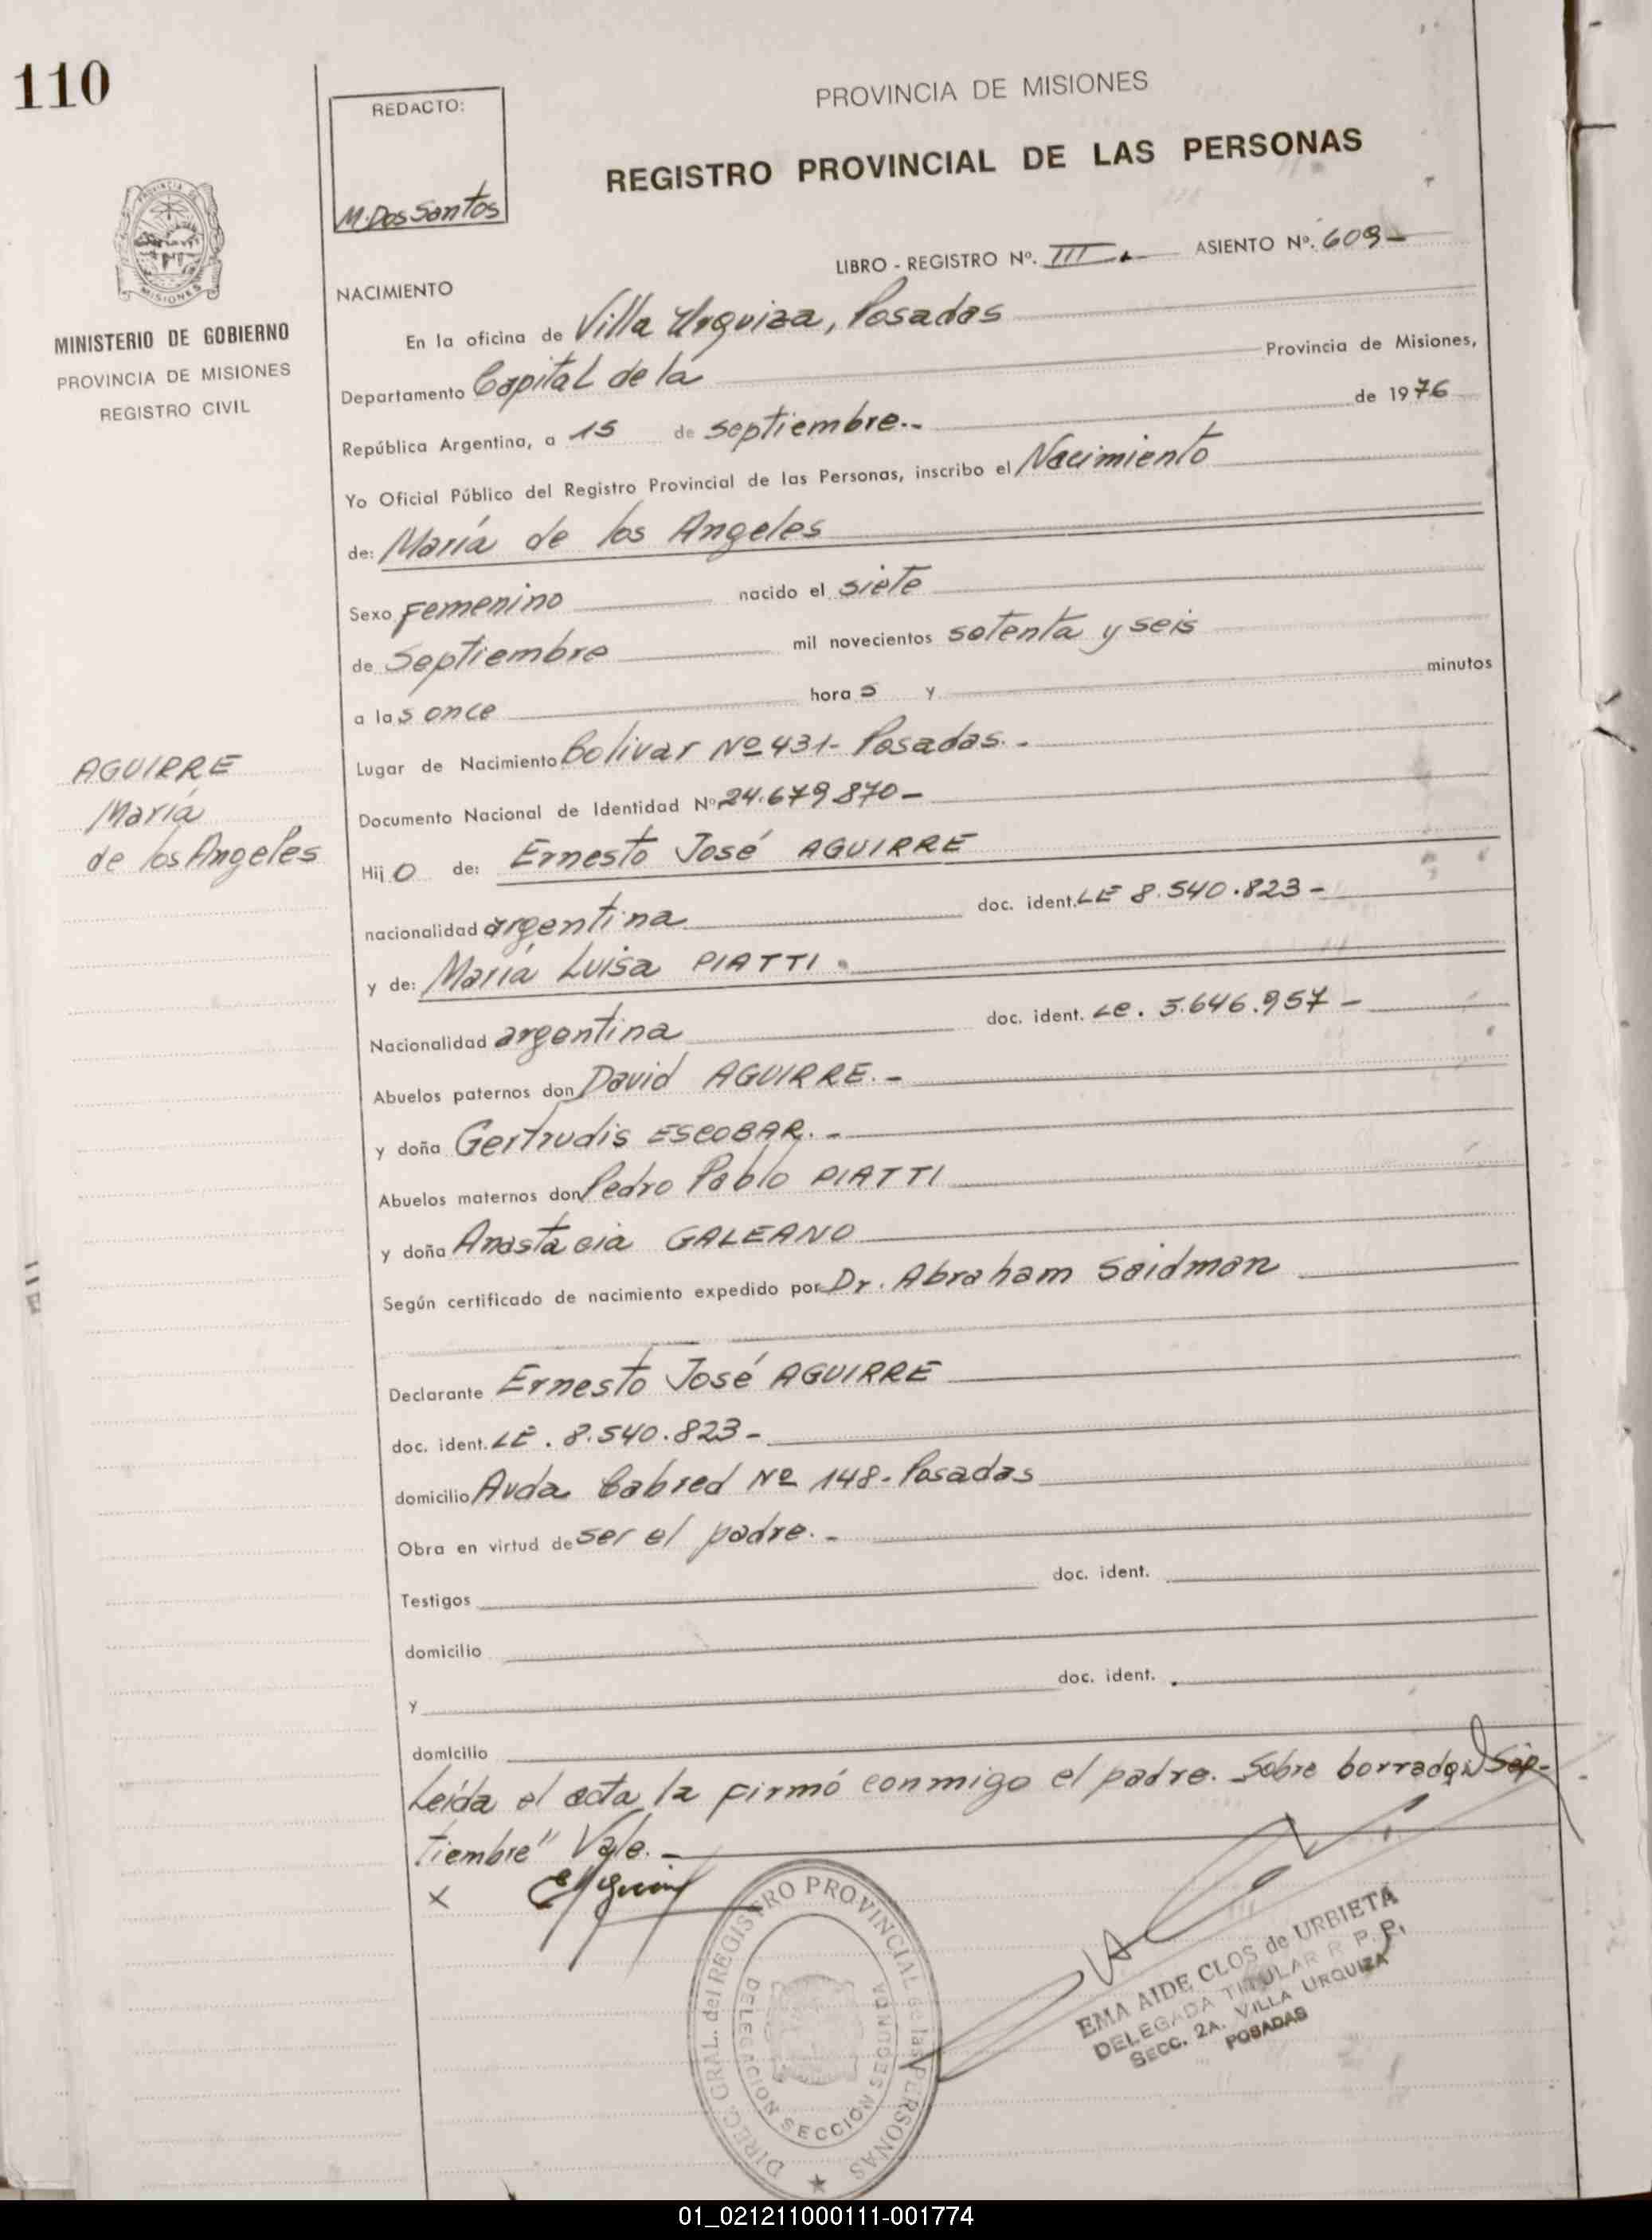 110
REDACTO:
M. Dos Santos
PROVINCIA DE MISIONES
REGISTRO PROVINCIAL DE LAS PERSONAS
LIBRO - REGISTRO Nº. III.— ASIENTO Nº. 609—
MISIONES
MINISTERIO DE GOBIERNO
PROVINCIA DE MISIONES
REGISTRO CIVIL
NACIMIENTO
En la oficina de Villa Urquiza, Posadas
Departamento Capital de la Provincia de Misiones,
República Argentina, a 15 de septiembre.- de 1976
Yo Oficial Público del Registro Provincial de las Personas, inscribo el Nacimiento
de: María de los Angeles
Sexo Femenino nacido el siete
de Septiembre mil novecientos setenta y seis
a las once horas y minutos
AGUIRRE
María
de los Angeles
Lugar de Nacimiento Bolivar Nº 431- Posadas.-
Documento Nacional de Identidad Nº 24.679.870—
Hijo de: Ernesto José AGUIRRE
nacionalidad argentina doc. ident. LE 8.540.823-
y de: María Luisa PIATTI.
Nacionalidad argentina doc. ident. Le. 5.646.957-
Abuelos paternos don David AGUIRRE.-
y doña Gertrudis ESCOBAR.-
Abuelos maternos don Pedro Pablo PIATTI
y doña Anastacia GALEANO
Según certificado de nacimiento expedido por Dr. Abraham Saidman
Declarante Ernesto José AGUIRRE
doc. ident. LE. 8.540.823-
domicilio Avda Cabred Nº 148- Posadas
Obra en virtud de ser el padre.-
Testigos doc. ident.
domicilio
y doc. ident.
domicilio
Leída el acta la firmó conmigo el padre. Sobre borrado: Sep-
tiembre" Vale.-
x
DIREC. GRAL. del REGISTRO PROVINCIAL de las PERSONAS
DELEGACION SECCION SEGUNDA
EMA AIDE CLOS de URBIETA
DELEGADA TITULAR R. P. P.
SECC. 2A. VILLA URQUIZA
POSADAS
01_021211000111-001774